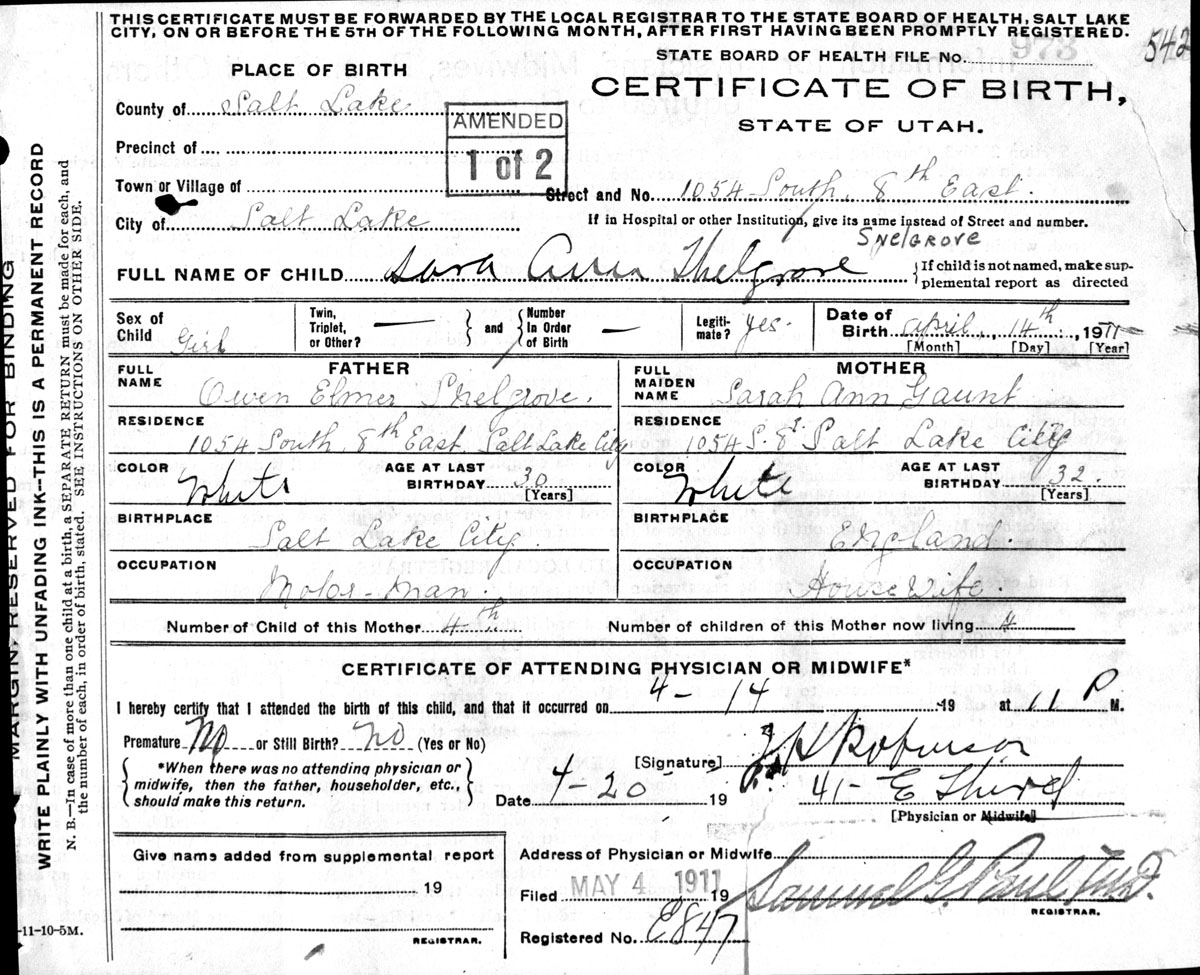 THIS CERTIFICATE MUST BE FORWARDED BY THE LOCAL REGISTRAR TO THE STATE BOARD OF HEALTH, SALT LAKE
CITY, ON OR BEFORE THE 5TH OF THE FOLLOWING MONTH, AFTER FIRST HAVING BEEN PROMPTLY REGISTERED.
542
STATE BOARD OF HEALTH FILE NO. 973
PLACE OF BIRTH
CERTIFICATE OF BIRTH,
STATE OF UTAH.
County of Salt Lake
AMENDED
1 of 2
Precinct of
Town or Village of
Street and No. 1054 South, 8th East.
City of Salt Lake
If in Hospital or other Institution, give its name instead of Street and number.
SNELGROVE
FULL NAME OF CHILD Sara Ann Shelgrove
{If child is not named, make sup-
plemental report as directed
Sex of Child Girl
Twin, Triplet, or Other? — } and { Number In Order of Birth —
Legiti-mate? yes.
Date of Birth April, 14th, 1911
[Month] [Day] [Year]
FATHER
MOTHER
FULL NAME Owen Elmer Shelgrove.
FULL MAIDEN NAME Sarah Ann Gaunt
RESIDENCE 1054 South 8th East Salt Lake City
RESIDENCE 1054 S. 8 Salt Lake City
COLOR White AGE AT LAST BIRTHDAY 30 [Years]
COLOR White AGE AT LAST BIRTHDAY 32. [Years]
BIRTHPLACE Salt Lake City.
BIRTHPLACE England.
OCCUPATION Motor-man.
OCCUPATION House Wife.
Number of Child of this Mother 4th
Number of children of this Mother now living 4
CERTIFICATE OF ATTENDING PHYSICIAN OR MIDWIFE*
I hereby certify that I attended the birth of this child, and that it occurred on 4-14 -19 at 11 P M.
Premature No or Still Birth? No (Yes or No)
*When there was no attending physician or
midwife, then the father, householder, etc.,
should make this return.
[Signature] Robinson
Date 4-20 19
41- E Third
[Physician or Midwife]
Give name added from supplemental report
19
REGISTRAR.
Address of Physician or Midwife
Filed MAY 4 1911 19
Samuel G. Paul, M.D.
REGISTRAR.
Registered No. E847
-11-10-5M.
MARGIN RESERVED FOR BINDING
WRITE PLAINLY WITH UNFADING INK--THIS IS A PERMANENT RECORD
N. B.--In case of more than one child at a birth, a SEPARATE RETURN must be made for each, and
the number of each, in order of birth, stated. SEE INSTRUCTIONS ON OTHER SIDE.